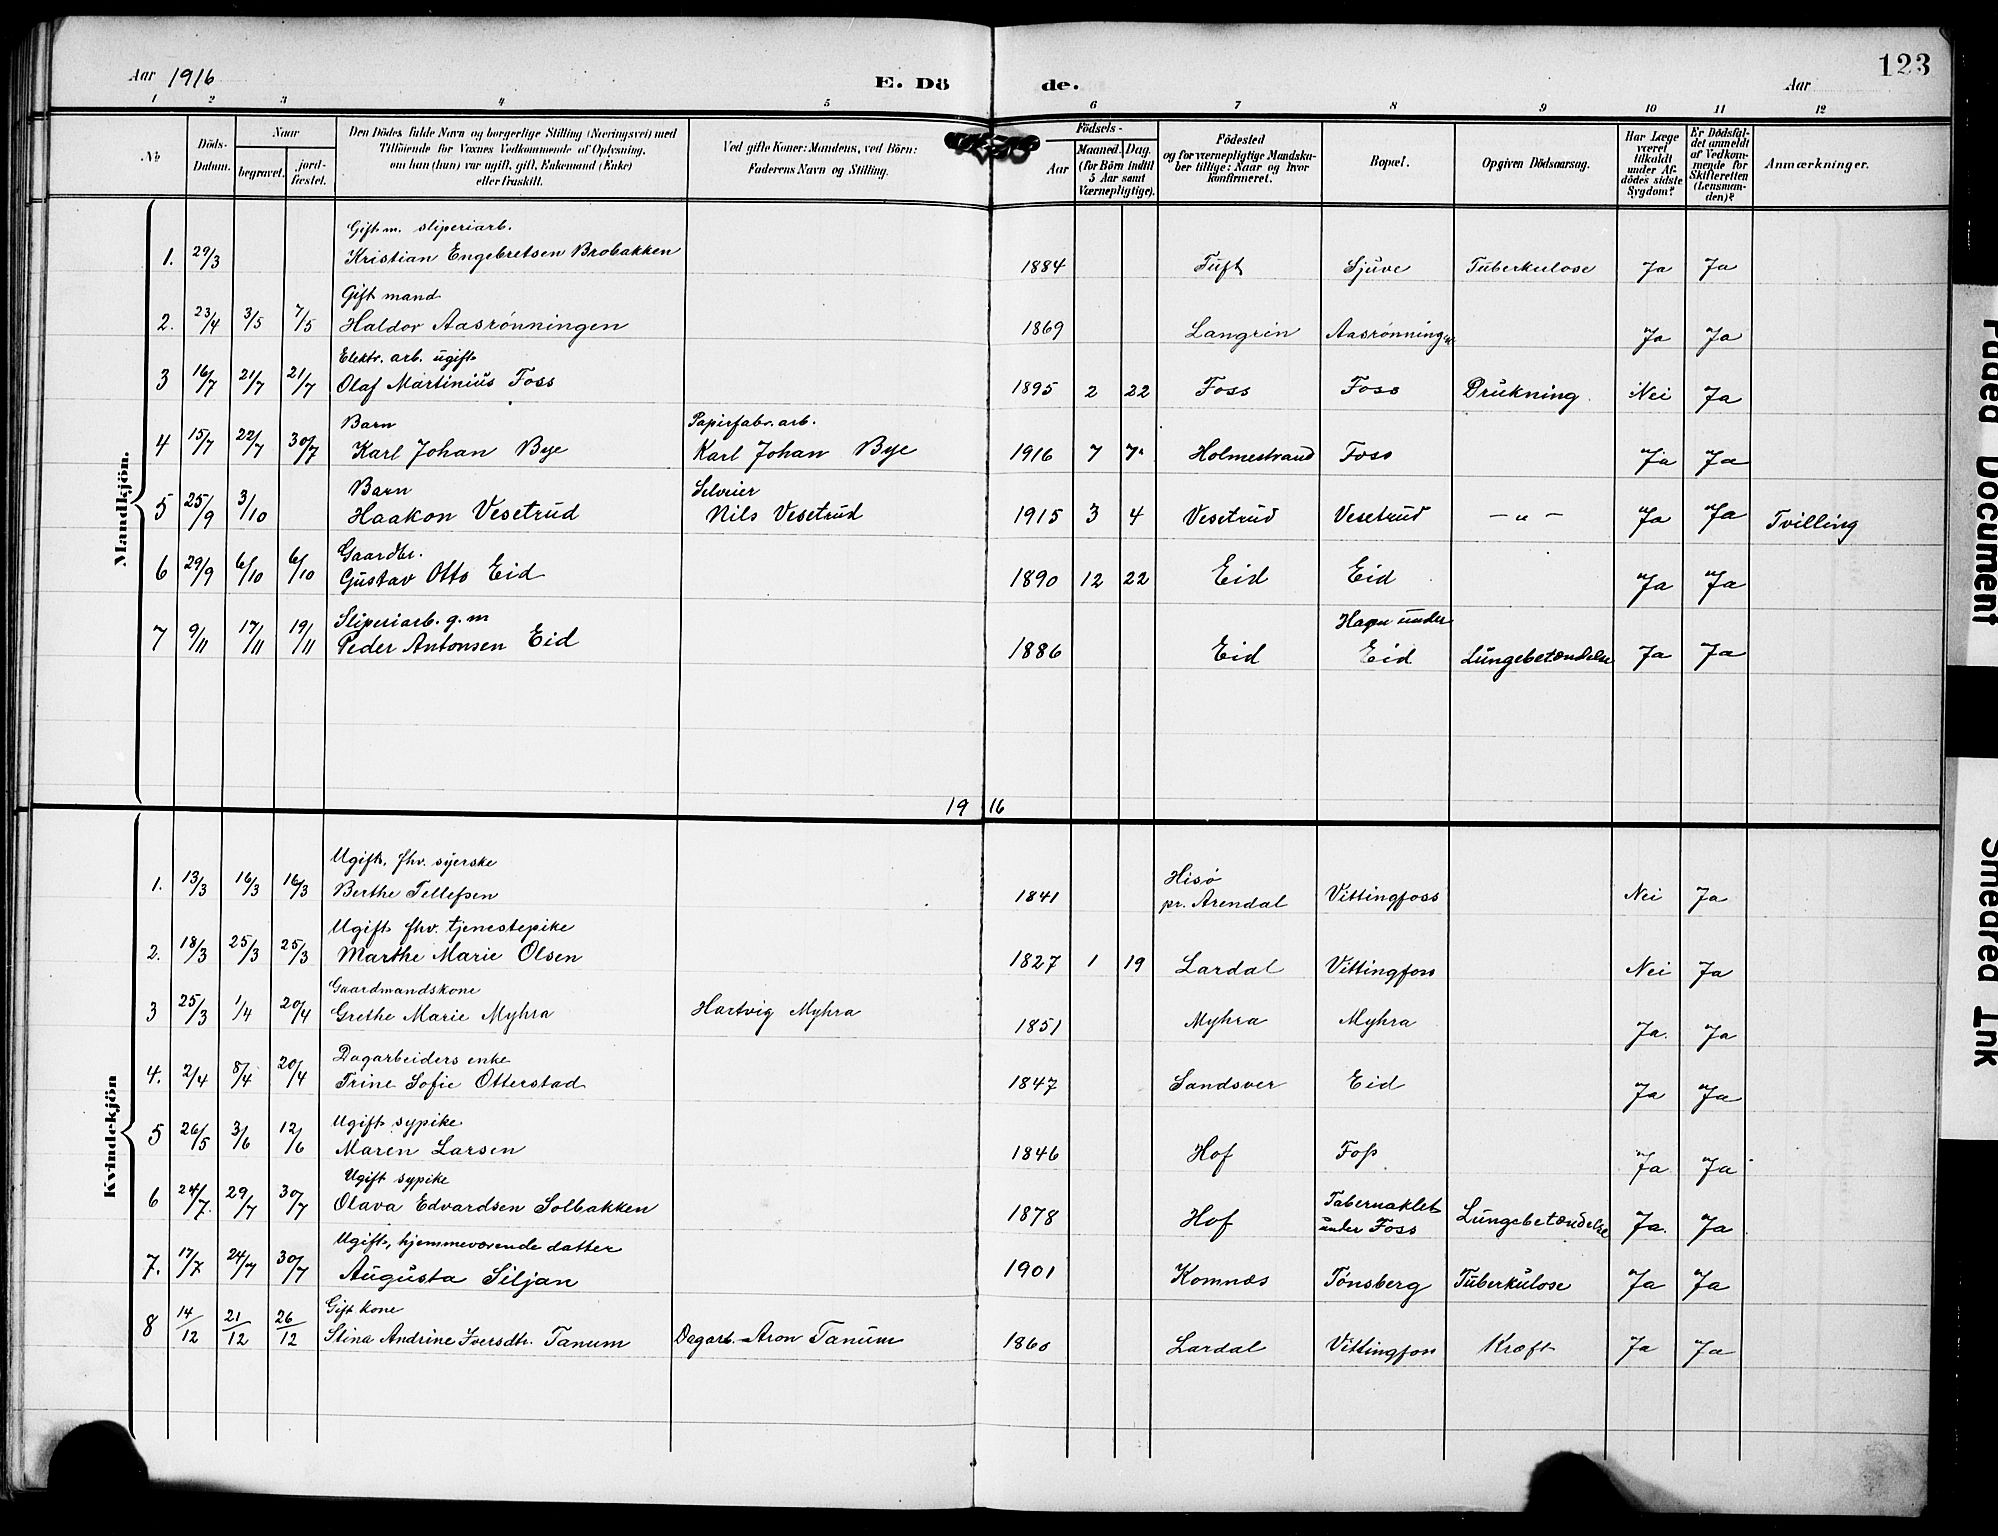 Aar 1916
E. Döde.
Aar
123
1 2 3 4 5 6 7 8 9 10 11 12
No
Döds-Datum.
Naar
begravet.
jord-fæstet.
Den Dödes fulde Navn og borgerlige Stilling (Næringsvei) med
Tilföiende for Voxnes Vedkommende af Oplysning,
om han (hun) var ugift, gift, Enkemand (Enke)
eller fraskilt.
Ved gifte Koner: Mandens, ved Börn:
Faderens Navn og Stilling.
Födsels-
Aar
Maaned. Dag.
(for Börn indtil
5 Aar samt
Værnepligtige).
Födested
og for værnepligtige Mandska-
ber tillige: Naar og hvor
konfirmeret.
Bopæl.
Opgiven Dödsaarsag.
Har Læge
været
tilkaldt
under Af-
dödes sidste
Sygdom?
Er Dödsfal-
det anmeldt
af Vedkom-
mende for
Skifteretten
(Lensman-
den)?
Anmærkninger.
Mandkjön.
Gift m. sliperiarb.
1. 29/3 Kristian Engebretsen Brobakken 1884 Tuft Sjuve Tuberkulose Ja Ja
Gift mand
2. 23/4 3/5 7/5 Haldor Aasrönningen 1869 Langrin Aasrönningen Ja Ja
Elektr. arb. ugift
3 16/7 21/7 21/7 Olaf Martinius Foss 1895 2 22 Foss Foss Drukning Nei Ja
Barn Papirfabr. arb.
4 15/7 22/7 30/7 Karl Johan Bye Karl Johan Bye 1916 7 7 Holmestrand Foss Ja Ja
Barn Selveier
5 25/9 3/10 Haakon Vesetrud Nils Vesetrud 1915 3 4 Vesetrud Vesetrud — „ — Ja Ja Tvilling
Gaardbr.
6 29/9 6/10 6/10 Gustav Otto Eid 1890 12 22 Eid Eid Ja Ja
Sliperiarb. g. m Hagen under
7 9/11 17/11 19/11 Peder Antonsen Eid 1886 Eid Eid Lungebetændelse Ja Ja
1916
Kvindekjön
Ugift, fhv. syerske Hisö
1. 13/3 16/3 16/3 Berthe Tellefsen 1841 pr. Arendal Vittingfoss Nei Ja
Ugift fhv. tjenestepike
2. 18/3 25/3 25/3 Marthe Marie Olsen 1827 1 19 Lardal Vittingfoss Nei Ja
Gaardmandskone
3 25/3 1/4 20/4 Grethe Marie Myhra Hartvig Myhra 1851 Myhra Myhra Ja. Ja
Dagarbeiders enke
4. 2/4 8/4 20/4 Trine Sofie Otterstad 1847 Sandsver Eid Ja Ja
Ugift sypike
5 26/5 3/6 12/6 Maren Larsen 1846 Hof Foss Ja Ja
Ugift sypike Tabernaklet
6 24/7. 29/7 30/7 Olava Edvardsen Solbakken 1878 Hof under Foss Lungebetændelse Ja. Ja
Ugift, hjemmeværende datter
7. 17/7 24/7 30/7 Augusta Siljan 1901 Komnæs Tönsberg Tuberkulose Ja Ja
Gift kone
8 14/12 21/12 26/12 Stina Andrine Iversdtr. Tanum Dagarb. Aron Tanum 1860 Lardal Vittingfoss Kræft Ja Ja
Faded Document
Smeared Ink